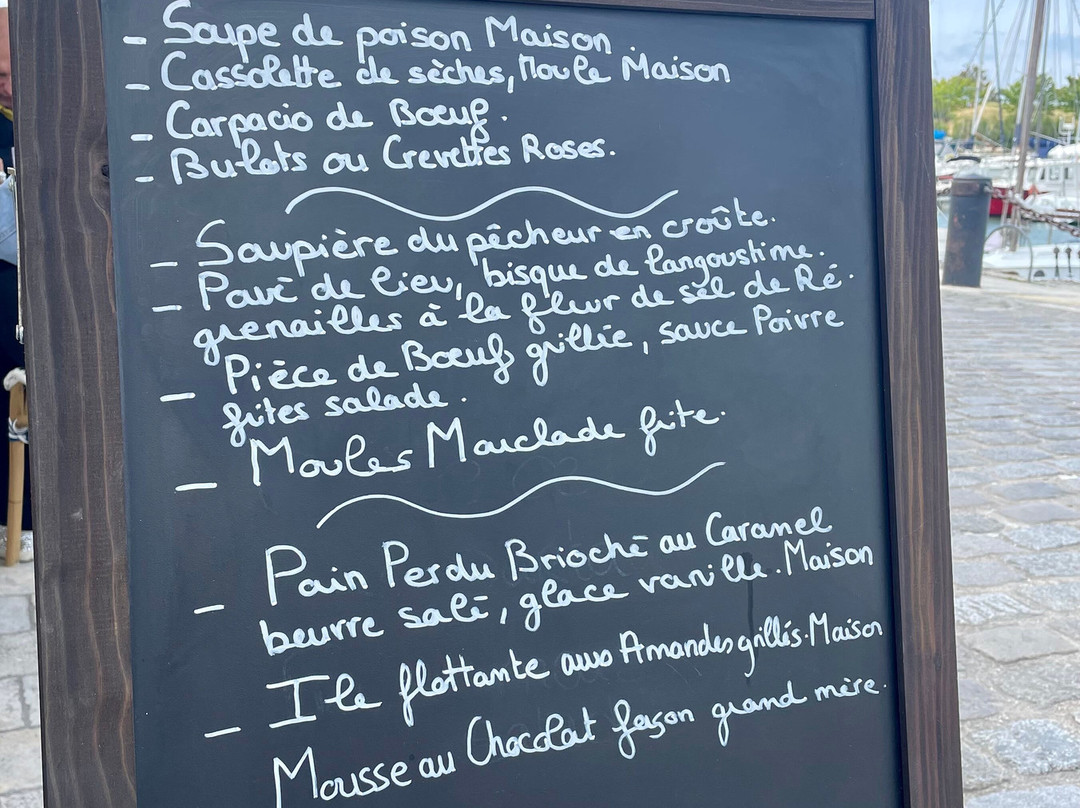 - Soupe de poison Maison.
- Cassolette de sèches, Moule Maison
- Carpacio de Boeuf.
- Bulots ou Crevettes Roses.
- Soupière du pêcheur en croûte.
- Pavé de lieu, bisque de langoustine.
grenailles à la fleur de sel de Ré.
- Pièce de Boeuf grillée, sauce Poivre
frites salade.
- Moules Mouclade frite.
- Pain Perdu Brioché au Caramel
beurre salé, glace vanille. Maison
- Ile flottante aux Amandes grillés. Maison
Mousse au Chocolat façon grand mère.